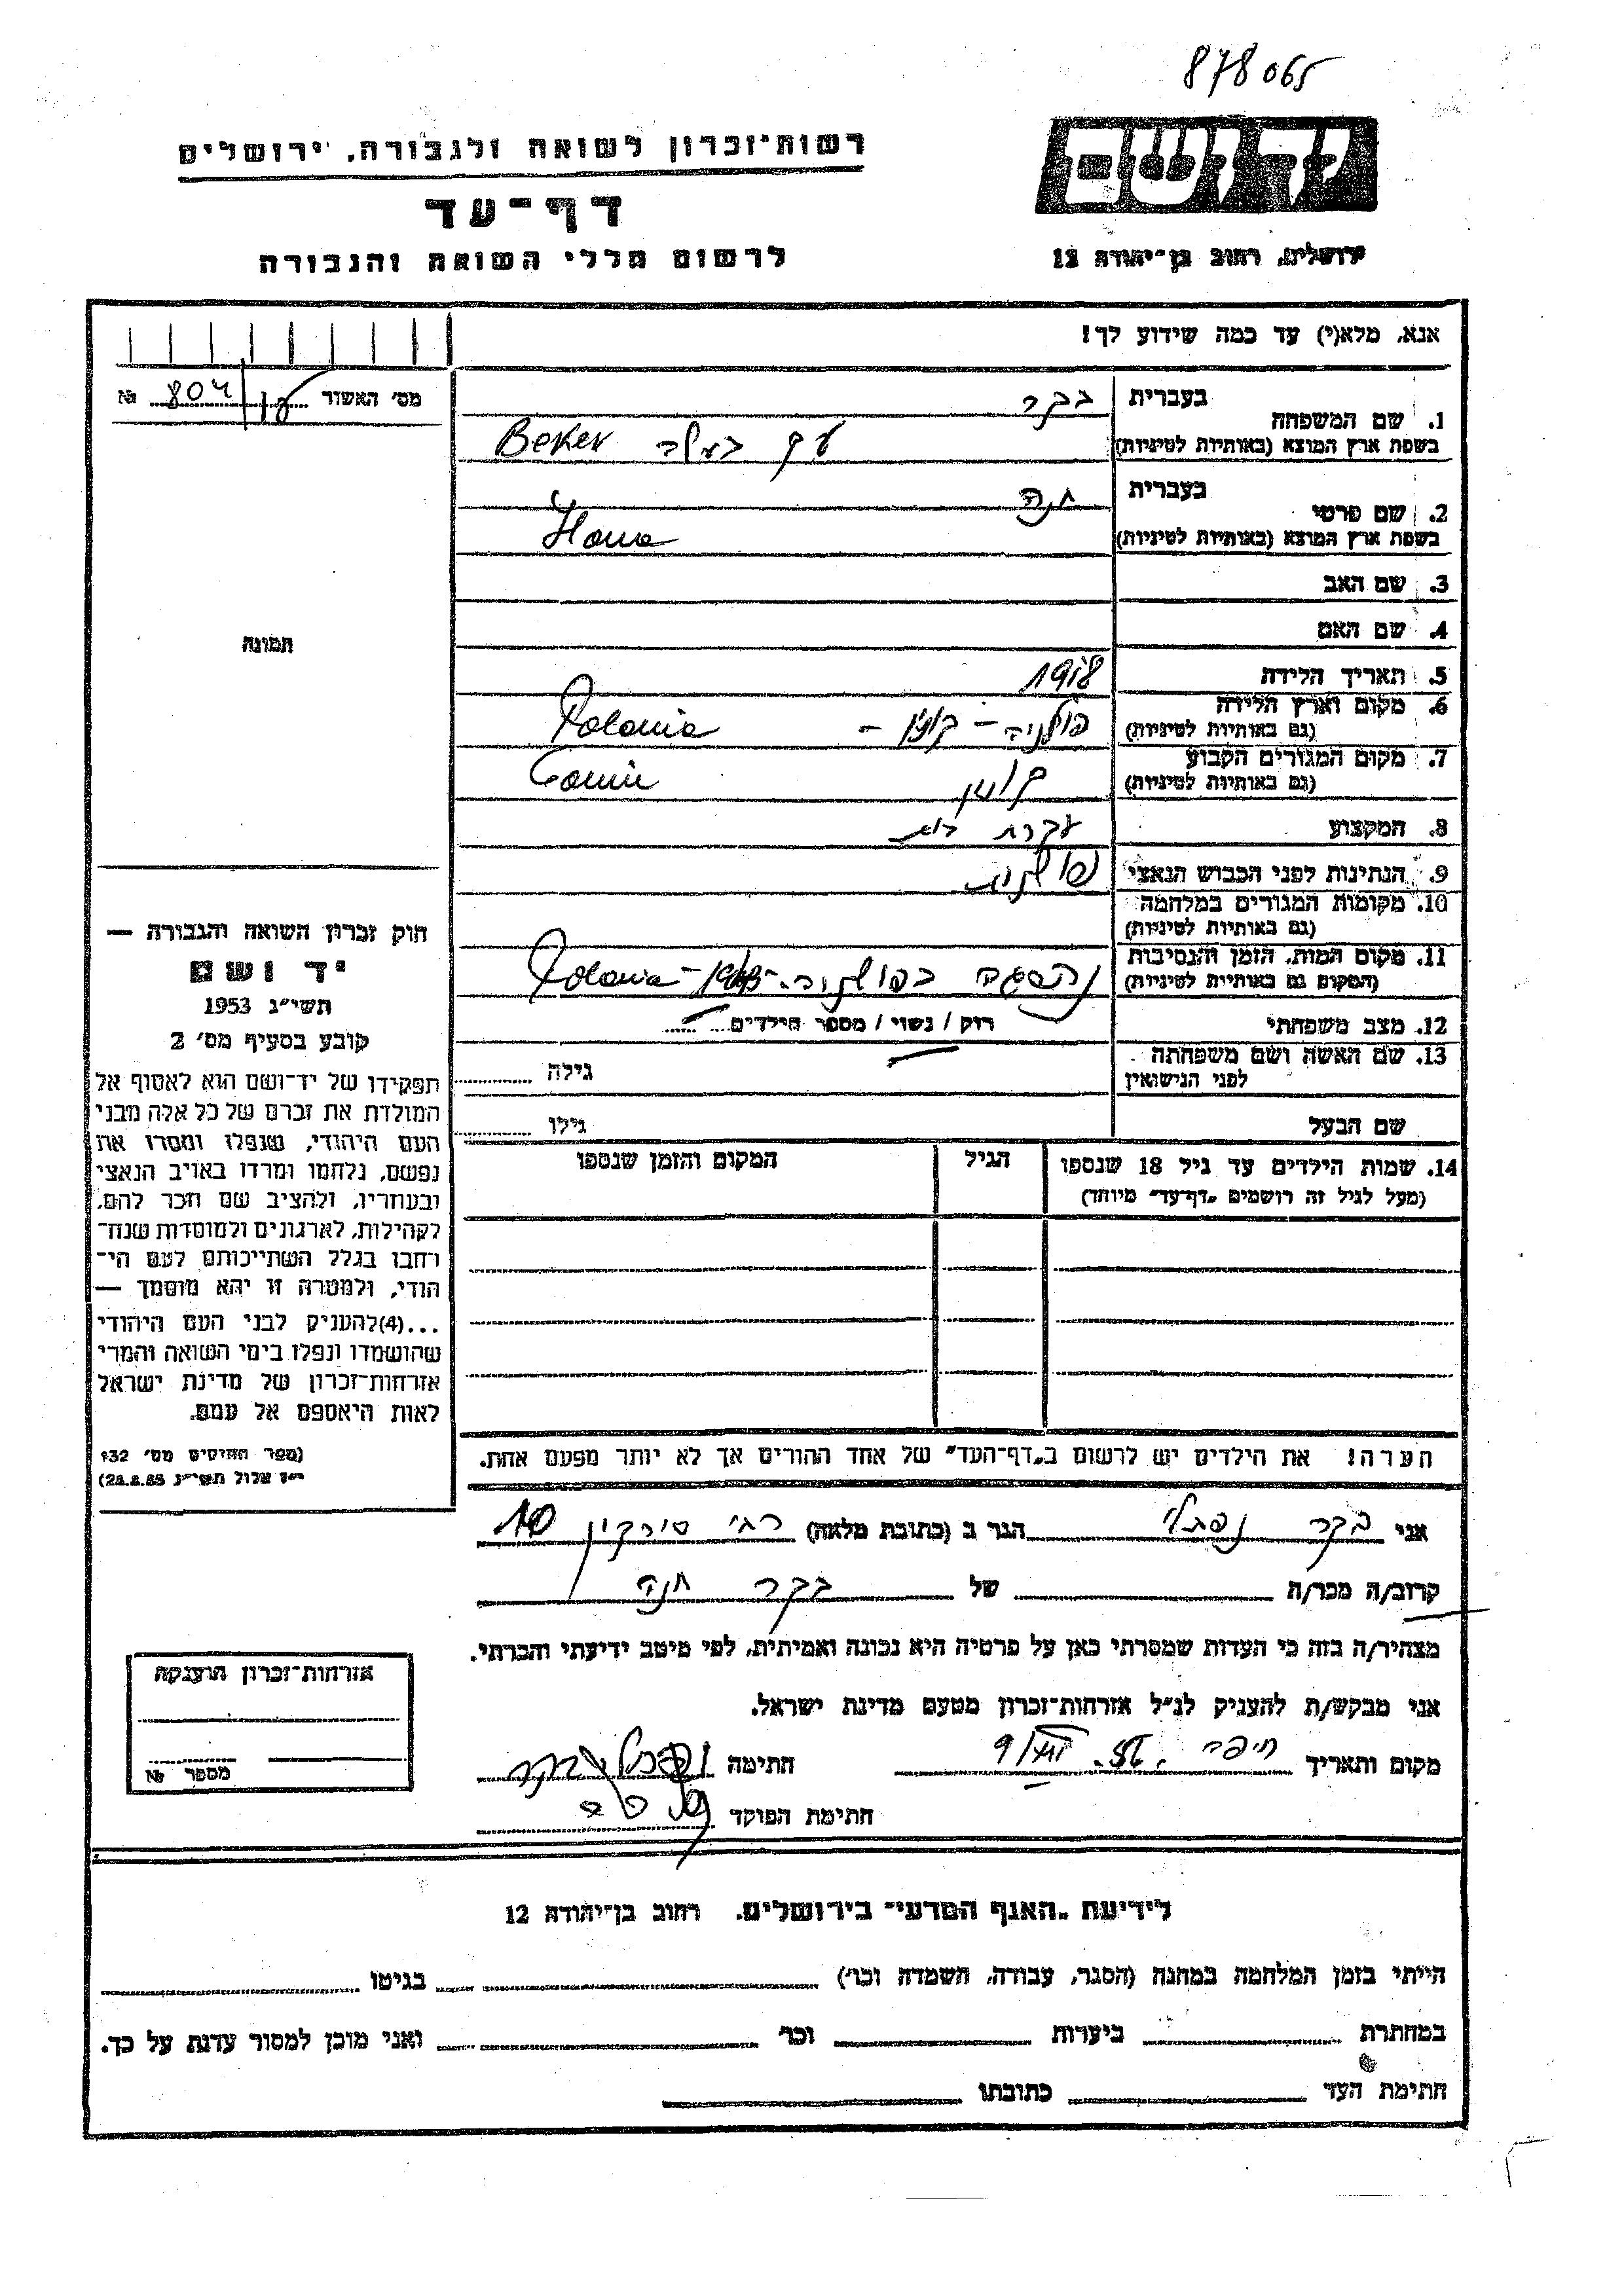 878065
רשות־זכרון לשואה ולגבורה, ירושלים
דף־עד
לרשום חללי השואה והגבורה
יד ושם
ירושלים, רחוב בן־יהודה 12
אנא, מלא(י) עד כמה שידוע לך!
מס׳ האשור 804/18 №
תמונה
חוק זכרון השואה והגבורה —
יד ושם
תשי״ג 1953
קובע בסעיף מס׳ 2
תפקידו של יד־ושם הוא לאסוף אל
המולדת את זכרם של כל אלה מבני
העם היהודי, שנפלו ומסרו את
נפשם, נלחמו ומרדו באויב הנאצי
ובעוזריו, ולהציב שם וזכר להם,
לקהילות, לארגונים ולמוסדות שנח־
רחבו בגלל השתייכותם לעם הי־
הודי, ולמטרה זו יהא מוסמך —
...(4)להעניק לבני העם היהודי
שהושמדו ונפלו בימי השואה והמרי
אזרחות־זכרון של מדינת ישראל
לאות היאספם אל עמם.
(ספר החוקים מס׳ 132
י״ז אלול תשי״ג 28.8.53)
1. שם המשפחה
בעברית בקר
בשפת ארץ המוצא (באותיות לטיניות) Beker
2. שם פרטי
בעברית חנה
בשפת ארץ המוצא (באותיות לטיניות) Hana
3. שם האב
4. שם האם
5. תאריך הלידה 1918
6. מקום וארץ הלידה
(גם באותיות לטיניות) פולניה – קונין – Polania
7. מקום המגורים הקבוע
(גם באותיות לטיניות) קונין Conin
8. המקצוע עקרת בית
9. הנתינות לפני הכבוש הנאצי פולניה
10. מקומות המגורים במלחמה
(גם באותיות לטיניות)
11. מקום המות, הזמן והנסיבות
(המקום גם באותיות לטיניות) נהרגה בפולניה - 1943 - Polania
12. מצב משפחתי רוק / נשוי / מספר הילדים
13. שם האשה ושם משפחתה
לפני הנישואין גילה
שם הבעל גילו
14. שמות הילדים עד גיל 18 שנספו הגיל המקום והזמן שנספו
(מעל לגיל זה רושמים „דף־עד״ מיוחד)
הערה! את הילדים יש לרשום ב„דף־העד״ של אחד ההורים אך לא יותר מפעם אחת.
אני בקר נפתלי הגר ב (כתובת מלאה) רח׳ סירקין 10
קרוב/ה מכר/ה של בקר חנה
מצהיר/ה בזה כי העדות שמסרתי כאן על פרטיה היא נכונה ואמיתית, לפי מיטב ידיעתי והכרתי.
אני מבקש/ת להעניק לנ״ל אזרחות־זכרון מטעם מדינת ישראל.
מקום ותאריך חיפה חתימה נפתלי בקר
חתימת הפוקד
אזרחות־זכרון הוענקה
מספר №
לידיעת „האגף המדעי״ בירושלים, רחוב בן־יהודה 12
הייתי בזמן המלחמה במחנה (הסגר, עבודה, השמדה וכו׳) בגיטו
במחתרת ביערות וכו׳ ואני מוכן למסור עדות על כך.
חתימת העד כתובתו